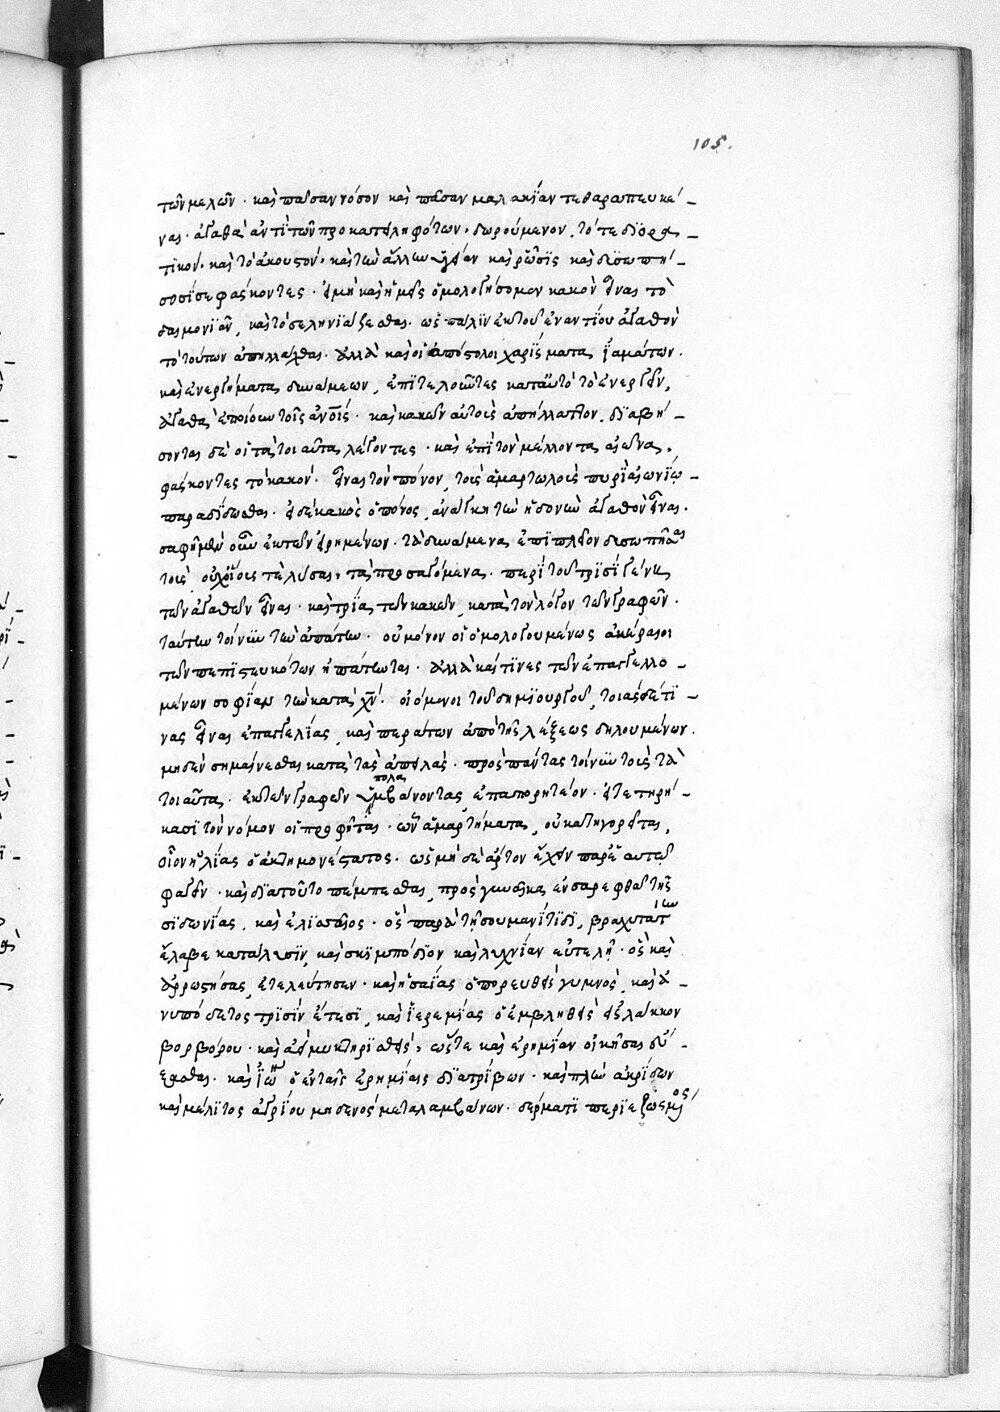 105.
τῶν μελῶν· καὶ πᾶσαν νόσον καὶ πᾶσαν μαλακίαν τεθεραπευκέ-
ναι· ἀγαθὰ ἀντὶ τῶν προκατειληφότων, δωρούμενον, τό τε διορα-
τικὸν, καὶ τὸ ἀκουστὸν, καὶ τὴν ἄλλην ὑγείαν καὶ ῥῶσιν καὶ δυσωπή-
σουσί σε φάσκοντες· εἰ μὴ καὶ ἡμεῖς ὁμολογήσομεν κακὸν εἶναι τὸ
δαιμονιᾶν, καὶ τὸ σεληνιάζεσθαι. ὡς πάλιν ἐκ τοῦ ἐναντίου ἀγαθὸν
τὸ τούτων ἀπηλλάχθαι. ἀλλὰ καὶ οἱ ἀπόστολοι χαρίσματα ἰαμάτων.
καὶ ἐνεργήματα δυνάμεων, ἐπιτελοῦντες κατ' αὐτὸ τὸ ἐνεργεῖν,
ἀγαθὰ ἐποίουν τοῖς ἀνοις· καὶ κακῶν αὐτοὺς ἀπήλλαττον. διαβή-
σονται δὲ οἱ τὰ τοιαῦτα λέγοντες· καὶ ἐπὶ τὸν μέλλοντα αἰῶνα.
φάσκοντες τὸ κακὸν· εἶναι τὸν πόνον, τοὺς ἁμαρτωλοὺς πυρὶ αἰωνίῳ
παραδίδοσθαι· εἰ δὲ κακὸς ὁ πόνος, ἀνάγκη τὴν ἡδονὴν ἀγαθὸν εἶναι.
σαφῆ μὲν οὖν ἐκ τῶν εἰρημένων· τὰ δυνάμενα ἐπὶ πλεῖον δυσωπῆσαι
τοὺς οὐχ οἵους τε λῦσαι, τὰ προσαγόμενα. περὶ τοῦ τρισὶ γένη
τῶν ἀγαθῶν εἶναι· καὶ τρία τῶν κακῶν, κατὰ τὸν λόγον τῶν γραφῶν.
ταύτην τοίνυν τὴν ἀπάτην· οὐ μόνον οἱ ὁμολογουμένως ἀκέραιοι
τῶν πεπιστευκότων ἠπάτηνται· ἀλλὰ καί τινες τῶν ἐπαγγελλο-
μένων σοφίαν τὴν κατὰ χν· οἰόμενοι τοῦ δημιουργοῦ, τοιάσδε τι-
νας εἶναι ἐπαγγελίας, καὶ πέρα τῶν ἀπὸ τῆς λέξεως δηλουμένων.
μηδὲν σημαίνεσθαι κατὰ τὰς ἀπειλάς· πρὸς πάντας τοίνυν τοὺς τὰ
τοιαῦτα· ἐκ τῶν γραφῶν ὑπολαμβάνοντας ἐπαπορητέον· εἰ τετηρή-
κασι τὸν νόμον οἱ προφῆται· ὧν ἁμαρτήματα, οὐ κατηγορεῖται,
οἷον ἠλίας ὁ ἀκτημονέστατος· ὡς μηδὲ ἄρτον ἔχειν παρ' ἑαυτῷ
φαγεῖν· καὶ διὰ τοῦτο πέμπεσθαι, πρὸς γυναῖκα εἰς σαρεφθὰ τῆς
σιδωνίας, καὶ ἐλισαῖος· ὃς παρὰ τῇ σουμανίτιδι, βραχυτάτην
ἔλαβε κατάλυσιν, καὶ σκιμπόδιον καὶ λυχνίαν εὐτελῆ· ὃς καὶ
ἀρρωστήσας, ἐτελεύτησεν· καὶ ἡσαΐας ὁ πορευθεὶς γυμνὸς, καὶ ἀ-
νυπόδετος τρισὶν ἔτεσι, καὶ ἱερεμίας ὁ ἐμβληθεὶς εἰς λάκκον
βορβόρου· καὶ ἀεὶ μυκτηρισθεὶς, ὥστε καὶ ἐρημίαν οἰκῆσαι εὔ-
ξασθαι. καὶ ἰωάννης ὁ ἐν ταῖς ἐρημίαις διατρίβων· καὶ πλὴν ἀκρίδων
καὶ μέλιτος ἀγρίου μηδενὸς μεταλαμβάνων· δέρματι περιεζωσμένος